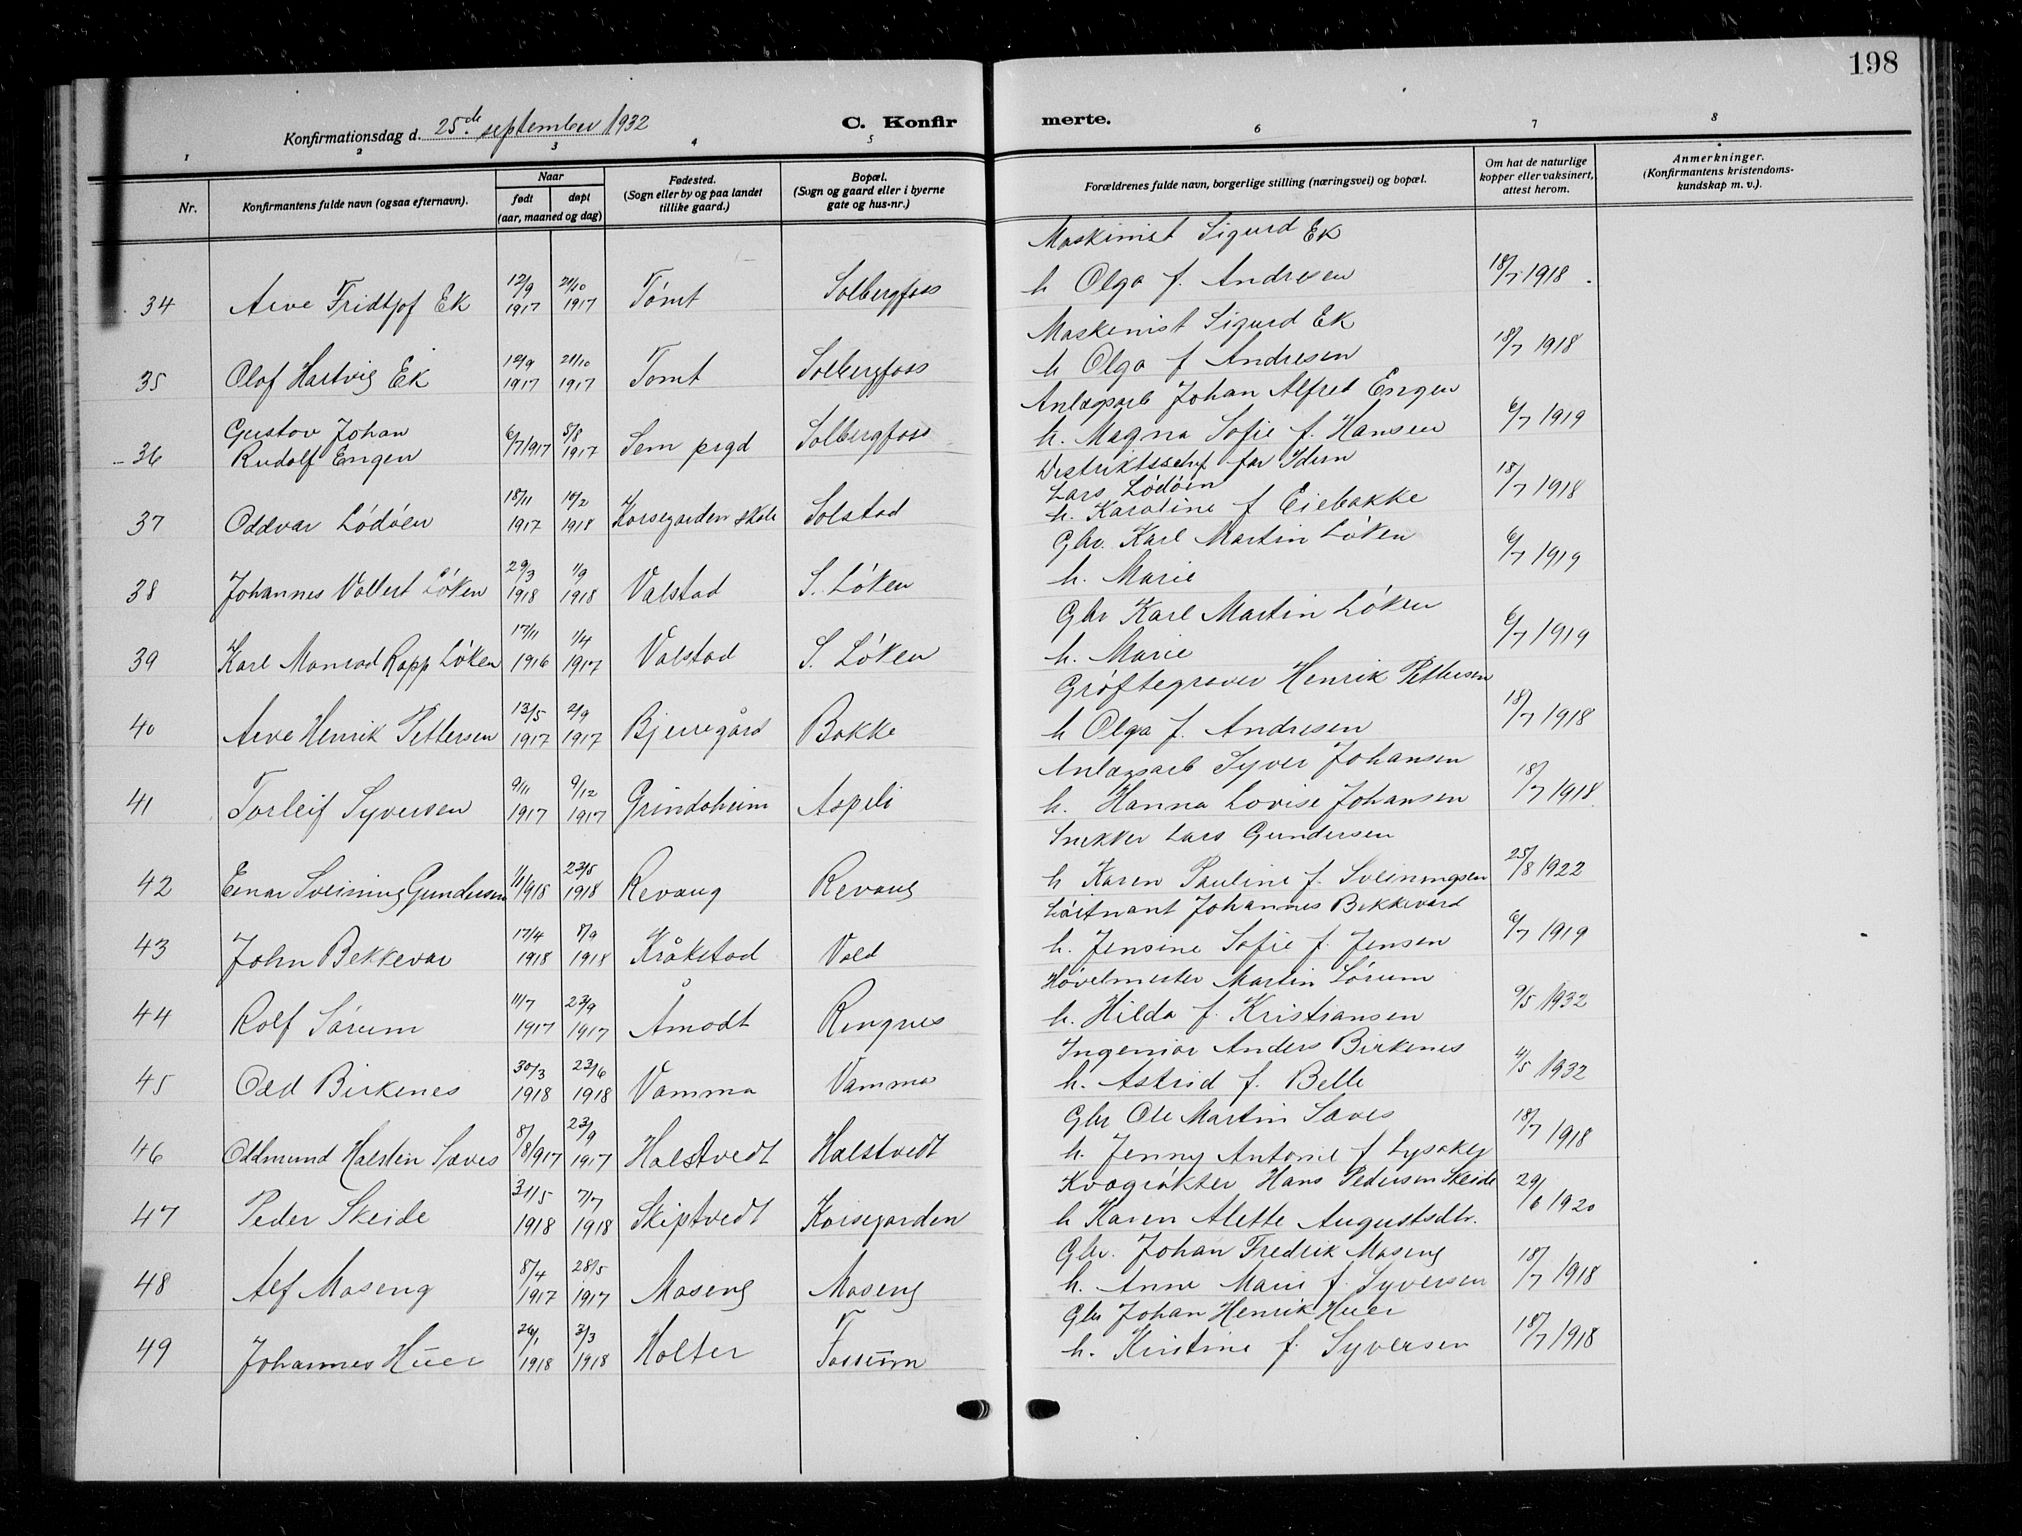 198
Konfirmationsdag d. 25de september 1932
C. Konfirmerte.
1 2 3 4 5 6 7 8
Nr. Konfirmantens fulde navn (ogsaa efternavn). Naar født døpt (aar, maaned og dag) Fødested. (Sogn eller by og paa landet tillike gaard.) Bopæl. (Sogn og gaard eller i byerne gate og hus-nr.) Forældrenes fulde navn, borgerlige stilling (næringsvei) og bopæl. Om hat de naturlige kopper eller vaksinert, attest herom. Anmerkninger. (Konfirmantens kristendomskundskap m. v.).
Maskinist Sigurd Ek
34 Arve Fridtjof Ek 12/9 1917 21/10 1917 Tomt Solbergfoss h Olga f. Andresen 18/7 1918
Maskinist Sigurd Ek
35 Olaf Hartvig Ek 12/9 1917 21/10 1917 Tomt Solbergfoss h Olga f Andresen 18/7 1918
Anlægsarb Johan Alfred Engen
36 Gustav Johan Rudolf Engen 6/7 1917 5/8 1917 Sem prgd Solbergfoss h. Magna Sofie f. Hansen 6/7 1919
Distriktssehf for Idern
Lars Lødøen
37 Oddvar Lødøen 18/11 1917 10/2 1918 Korsegarden skole Solstad h. Karoline f Eiebakke 18/7 1918
Gbr. Karl Martin Løken
38 Johannes Volbert Løken 29/3 1918 1/9 1918 Valstad S. Løken h. Marie 6/7 1919
Gbr Karl Martin Løken
39 Karl Monrad Rapp Løken 17/11 1916 1/4 1917 Valstad S. Løken h. Marie 6/7 1919
Grøftegraver Henrik Pettersen
40 Arve Henrik Pettersen 13/5 1917 2/9 1917 Bjerregård Bakke h Olga f. Andresen 18/7 1918
Anlægsarb Syver Johansen
41 Torleif Syversen 9/11 1917 9/12 1917 Grindsheim Aspeli h. Hanna Lovise Johansen 18/7 1918
Snekker Lars Gundersen
42 Einar Sveining Gundersen 1/1 1918 23/5 1918 Revaug Revaug h Karen Pauline f. Sveiningsen 25/8 1922
Løitnant Johannes Bekkevard
43 John Bekkevar 17/4 1918 8/9 1918 Kråkstad Vold h. Jensine Sofie f. Jensen 6/7 1919
Høvelmester Martin Sørum
44 Rolf Sørum 11/7 1917 23/9 1917 Åmodt Rengnes h. Hilda f. Kristiansen 9/5 1932
Ingeniør Anders Birkenes
45 Odd Birkenes 30/3 1918 23/6 1918 Vamma Vamma h. Astrid f. Belle 4/5 1932
Gbr Ole Martin Sæves
46 Oddmund Halstein Sæves 8/8 1917 23/9 1917 Halstvedt Halstvedt h. Jenny Antonie f Lysaker 18/7 1918
Kvægrøkter Hans Pedersen Skeide
47 Peder Skeide 31/5 1918 7/7 1918 Skiptvedt Korsegarden h Karen Alette Augustsdtr. 29/6 1920
Gbr. Johan Fredrik Maseng
48 Alf Maseng 8/4 1917 28/5 1917 Maseng Maseng h. Anne Marie f. Syversen 18/7 1918
Gbr Johan Henrik Huer
49 Johannes Huer 26/1 1918 3/3 1918 Holter Fossum h. Kristine f. Syversen 18/7 1918